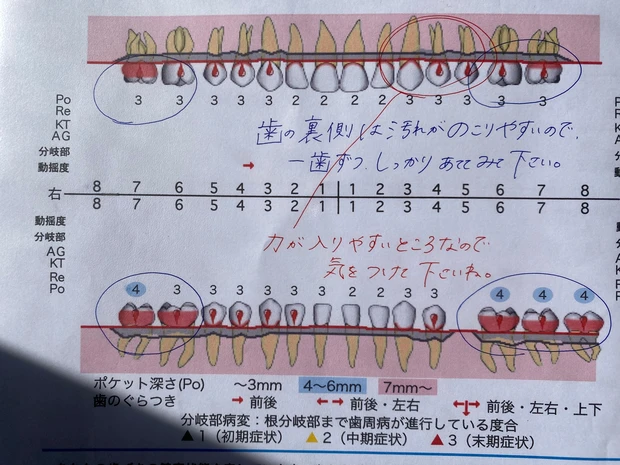 Po 3 3 3 3 3 2 2 2 2 3 3 3 3 3
Re
KT
AG
分岐部
動揺度
歯の裏側は汚れがのこりやすいので、
一歯ずつ、しっかりあててみて下さい。
右 8 7 6 5 4 3 2 1 1 2 3 4 5 6 7 8
8 7 6 5 4 3 2 1 1 2 3 4 5 6 7 8
動揺度
分岐部
AG
KT
Re
Po 4 3 3 3 3 2 1 2 2 3 3 4 4 4
力が入りやすいところなので
気をつけて下さいね。
ポケット深さ(Po) ～3mm 4～6mm 7mm～
歯のぐらつき 前後 前後・左右 前後・左右・上下
分岐部病変：根分岐部まで歯周病が進行している度合
▲1（初期症状） ▲2（中期症状） ▲3（末期症状）